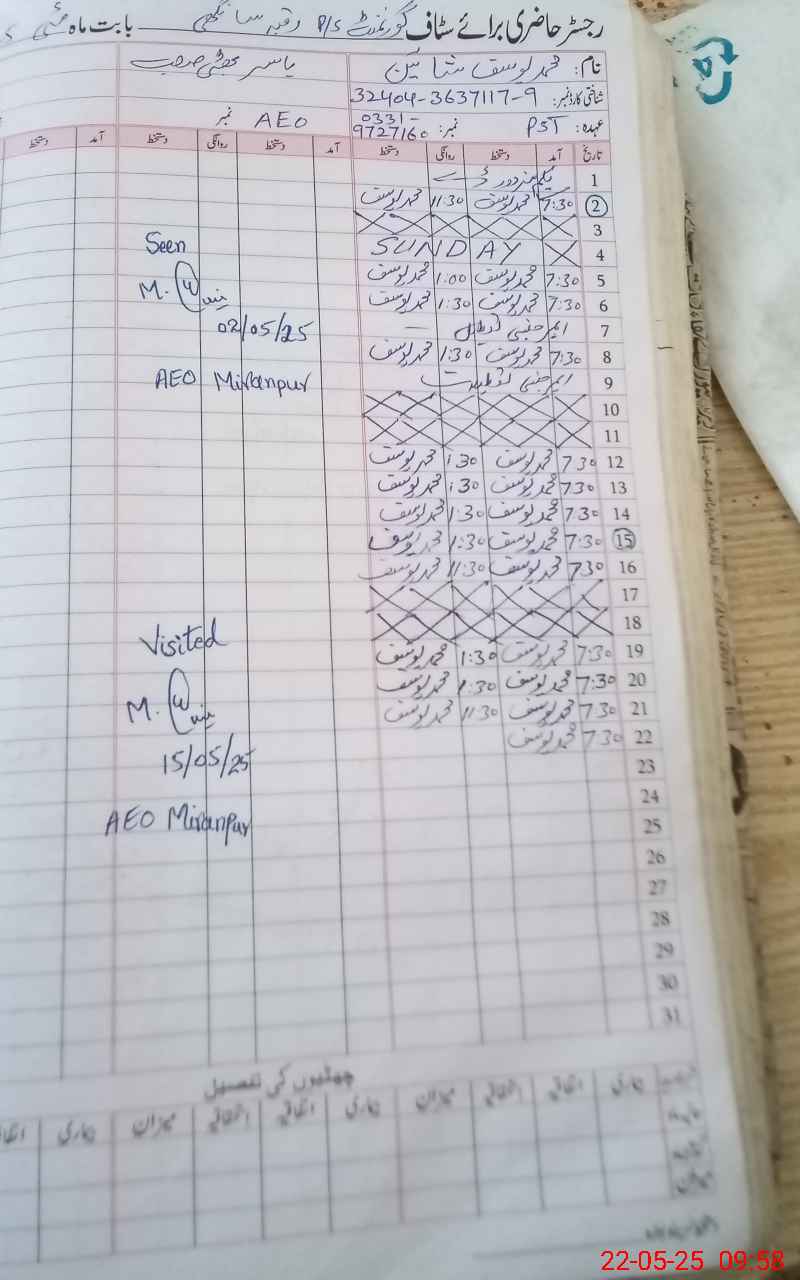 رجسٹر حاضری برائے سٹاف گورنمنٹ P/S بابت ماہ مئی
نام: محمد یوسف یاسر بھٹی صاحب
شناختی کارڈ نمبر: 32404-3637117-9
عہدہ: PST نمبر: 0331-9727160 AEO نمبر
تاریخ آمد دستخط روانگی دستخط آمد دستخط روانگی دستخط آمد دستخط
1 یکم
2 7:30 محمد یوسف 11:30 محمد یوسف
3
4 SUNDAY
Seen
5 7:30 محمد یوسف 1:00 محمد یوسف
M.
6 7:30 محمد یوسف 1:30 محمد یوسف
7 ایمرجنسی
02/05/25
8 7:30 محمد یوسف 1:30 محمد یوسف
9 ایمرجنسی
AEO Miranpur
10
11
12 7:30 محمد یوسف 1:30 محمد یوسف
13 7:30 محمد یوسف 1:30 محمد یوسف
14 7:30 محمد یوسف 1:30 محمد یوسف
15 7:30 محمد یوسف 1:30 محمد یوسف
16 7:30 محمد یوسف 11:30 محمد یوسف
17
18
Visited
19 7:30 محمد یوسف 1:30 محمد یوسف
20 7:30 محمد یوسف 1:30 محمد یوسف
21 7:30 محمد یوسف 11:30 محمد یوسف
M.
22 7:30 محمد یوسف
15/05/25
23
24
AEO Miranpur
25
26
27
28
29
30
31
چھٹیوں کی تفصیل
بیماری اتفاقیہ استحقاقیہ میزان بیماری اتفاقیہ استحقاقیہ میزان بیماری
22-05-25 09:58